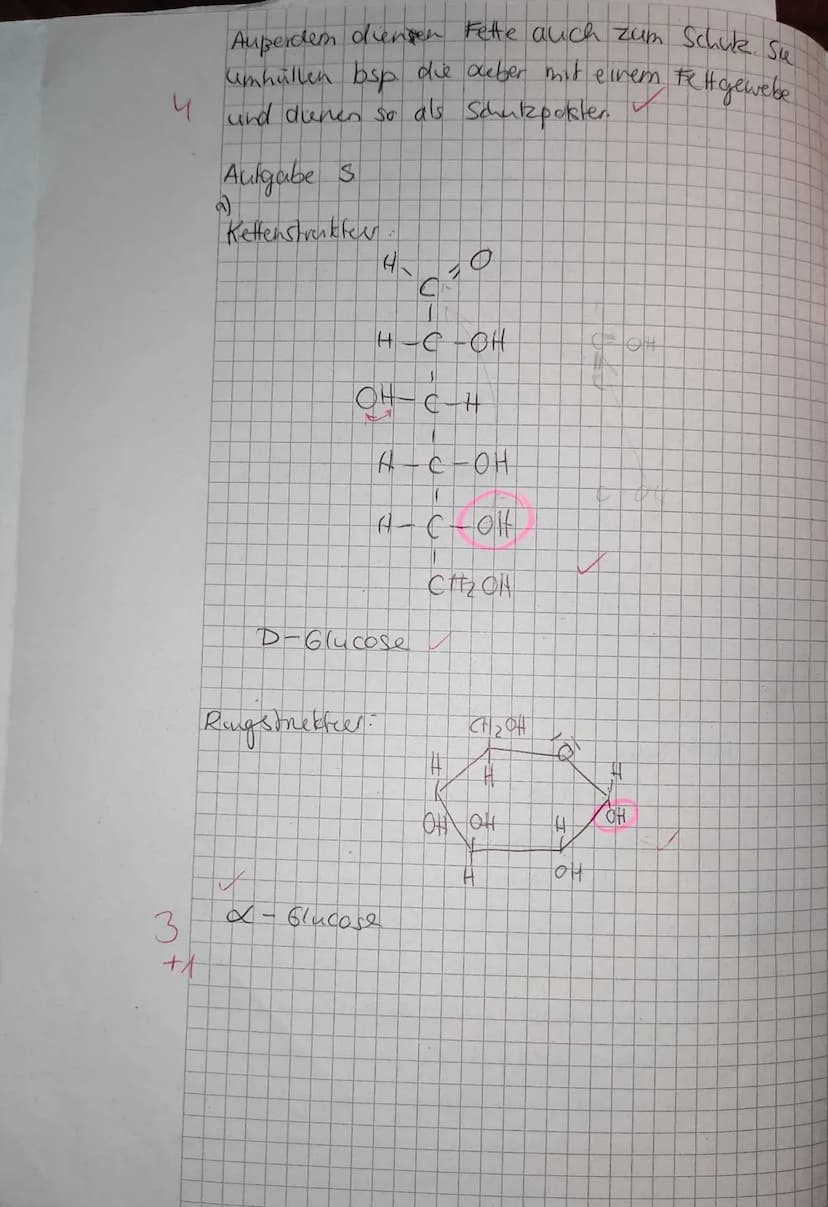 Außerdem dienen Fette auch zum Schutz. Sie
umhüllen bsp. die mit einem Fettgewebe
4 und dienen so als Schutzpolster. ✓
Aufgabe 5
a)
Kettenstruktur:
H O
C
H-C-OH
OH-C-H
H-C-OH
H-C-OH
CH2OH
D-Glucose ✓
Ringstruktur:
CH2OH
O
H H H
OH OH H OH
H OH
α-Glucose
3
+1